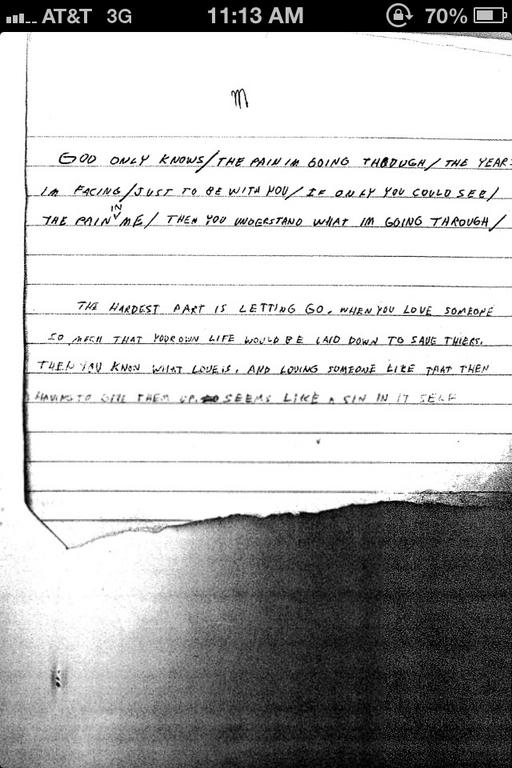 AT&T 3G 11:13 AM 70%
m
GOD ONLY KNOWS/THE PAIN IM GOING THROUGH/THE YEARS
IM FACING/JUST TO BE WITH YOU/IF ONLY YOU COULD SEE/
THE PAIN IN ME/ THEN YOU UNDERSTAND WHAT IM GOING THROUGH/
THE HARDEST PART IS LETTING GO. WHEN YOU LOVE SOMEONE
SO MUCH THAT YOUR OWN LIFE WOULD BE LAID DOWN TO SAVE THIERS.
THEN YOU KNOW WHAT LOVE IS. AND LOVING SOMEONE LIKE THAT THEN
HAVING TO GIVE THEM UP. SEEMS LIKE A SIN IN IT SELF